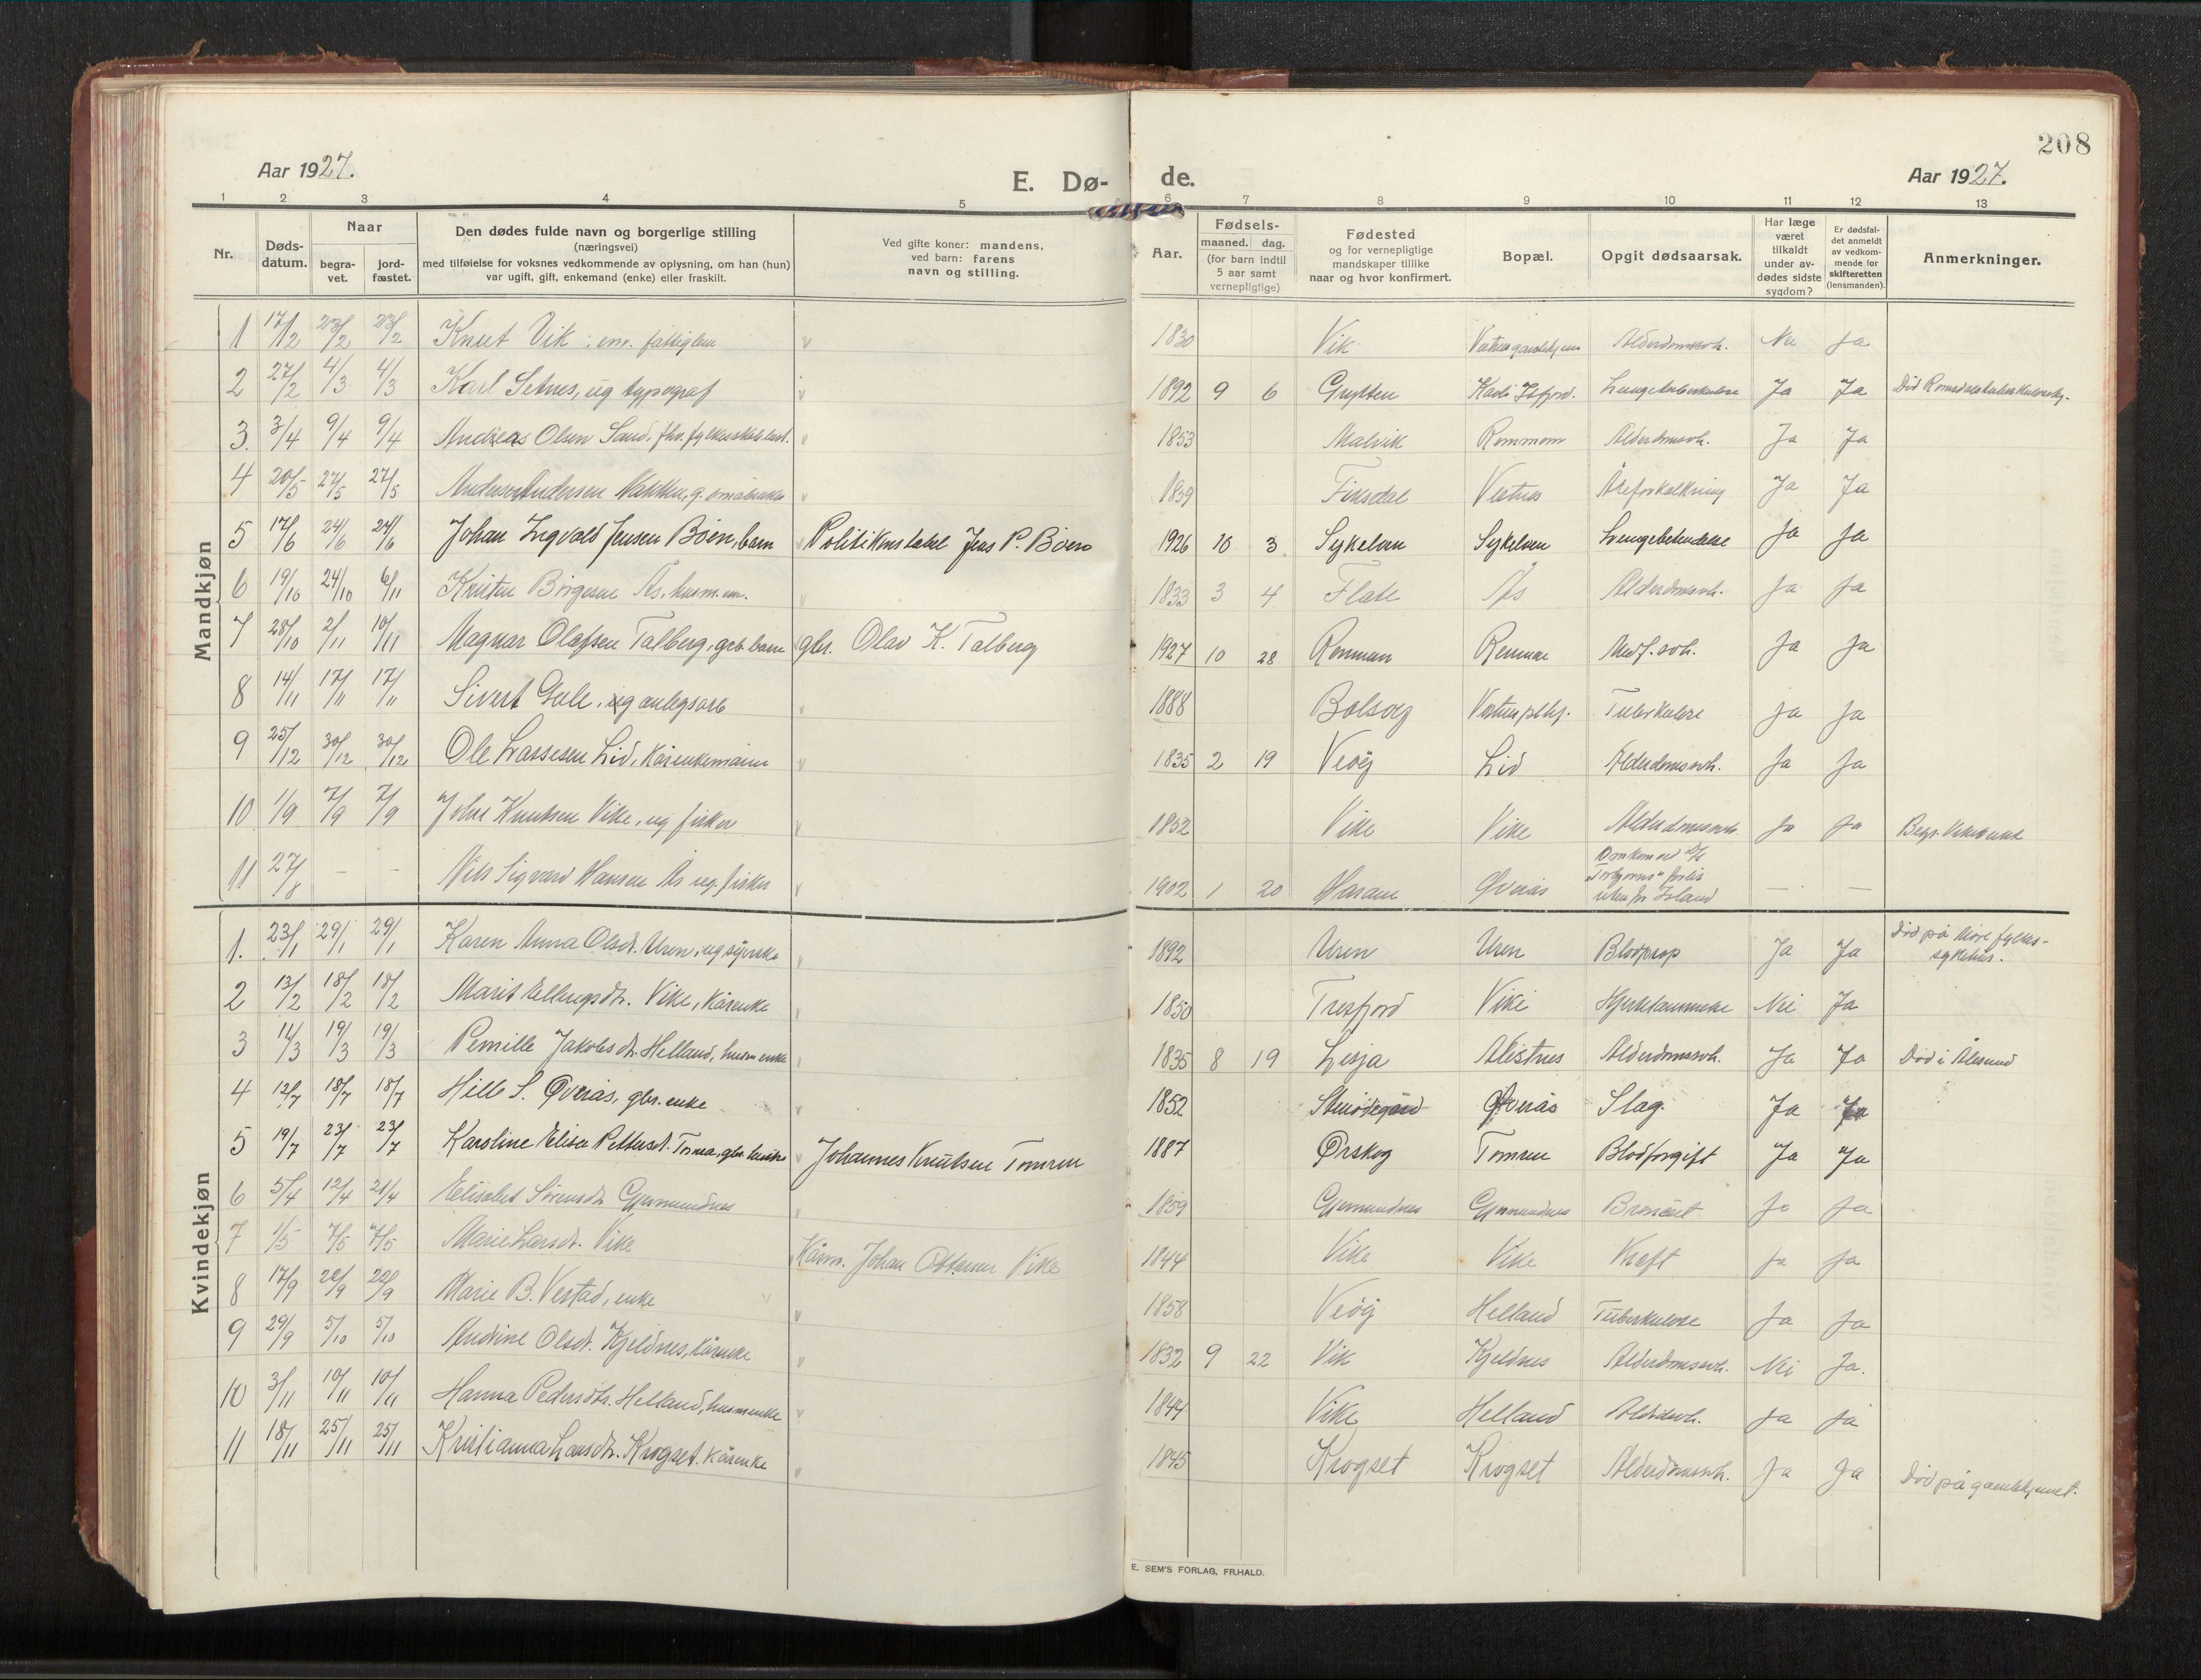 208
Aar 1927.
E. Dø-
de.
Aar 1927.
1 2 3 4 5 6 7 8 9 10 11 12 13
Nr.
Døds-
datum.
Naar
begra-
vet.
jord-
fæstet.
Den dødes fulde navn og borgerlige stilling
(næringsvei)
med tilføielse for voksnes vedkommende av oplysning, om han (hun)
var ugift, gift, enkemand (enke) eller fraskilt.
Ved gifte koner: mandens,
ved barn: farens
navn og stilling.
Aar.
Fødsels-
maaned. dag.
(for barn indtil
5 aar samt
vernepligtige)
Fødested
og for vernepligtige
mandskaper tillike
naar og hvor konfirmert.
Bopæl.
Opgit dødsaarsak.
Har læge
været
tilkaldt
under av-
dødes sidste
sygdom?
Er dødsfal-
det anmeldt
av vedkom-
mende for
skifteretten
(lensmanden).
Anmerkninger.
Mandkjøn
1 17/2 23/2 23/2 Knut Vik, em. fattiglem 1830 Vik Alderdomssvh. Nei Ja
2 27/2 4/3 4/3 Karl Setnes, ug typograf 1892 9 6 Grytten Isfjord. Lungetuberkulose Ja Ja Død
3. 3/4 9/4 9/4 Andreas Olsen Sand, fhv. 1853 Malvik Remmem Alderdomssvh. Ja Ja
4 20/5 27/5 27/5 Anders Andersen g. småbruker 1839 Vestnes Åreforkalkning Ja Ja
5 17/6 24/6 24/6 Johan Ingvald Jensen Böen, barn Politikonstabel Jens P. Böen 1926 10 3 Sykelven Sykelven Lungebetendelse Ja Ja
6 19/10 24/10 6/11 Kristen Börgesen Ås, husm. em. 1833 3 4 Flate Ås Alderdomssvh. Ja Ja
7 28/10 2/11 10/11 Magnar Olafsen Talberg, gbr. barn gbr. Olav K. Talberg 1927 10 28 Remmem Remmem Medf. svh. Ja Ja
8 14/11 17/11 17/11 Sivert Gule, ug anlegsarb 1888 Bolsøy Tuberkulose Ja Ja
9 25/12 30/12 30/12 Ole Lassesen Lid, kårenkemann 1835 2 19 Veöy Lid Alderdomssvh. Ja Ja
10 1/9 7/9 7/9 Johs Knutsen Vike, ug fisker 1852 Vike Vike Alderdomssvh. Ja Ja Begr.
11 27/8 – – Nils Sigvard Hansen Ås ug. fisker 1902 1 20 Haram Øverås Omkom ved D/S
forlis
uten for Island — —
Kvindekjøn
1. 23/1 29/1 29/1 Karen Anna Olsdt. Uren, ug syerske 1892 Uren Uren Blodprop Ja Ja Død på Möre fylkes-
sykehus.
2 13/2 18/2 18/2 Marit Ellingsdtr. Vike, kårenke 1850 Tresfjord Vike Hjertelammelse Nei Ja
3 11/3 19/3 19/3 Pernille Jakobsdtr. Helland, husm enke 1835 8 19 Lesja Alderdomssvh. Ja Ja Død i Ålesund
4 12/7 18/7 18/7 Hille S. Øverås, gbr. enke 1852 Øverås Slag. Ja Ja
5 19/7 23/7 23/7 Karoline Elisa Pettersd. Tomra, gbr. hustru Johannes Knutsen Tomren 1887 Ørskog Tomren Blodforgift Ja Ja
6 5/4 12/4 21/4 Elisabet Sörensdtr Gjermundnes 1859 Gjermundnes Gjermundnes Ja Ja
7 1/5 7/5 7/5 Marie Larsdt. Vike Kårm. Johan Ottesen Vike 1844 Vike Vike Kreft Ja Ja
8 17/9 22/9 22/9 Marie B. Vestad, enke 1858 Veöy Helland Tuberkulose Ja Ja
9 29/9 5/10 5/10 Andrine Olsdt. Kjeldnes, kårenke 1832 9 22 Vik Kjeldnes Alderdomssvh. Nei Ja.
10 3/11 10/11 10/11 Hanna Pedersdtr. Helland, husm enke 1844 Vike Helland Alderdsvh. Ja Ja
11 18/11 25/11 25/11 Kristianna Larsdtr. Krogset. kårenke 1845 Krogset Krogset Alderdomssvh. Ja Ja Død på gamlehjemet.
E. SEM'S FORLAG, FR.HALD.